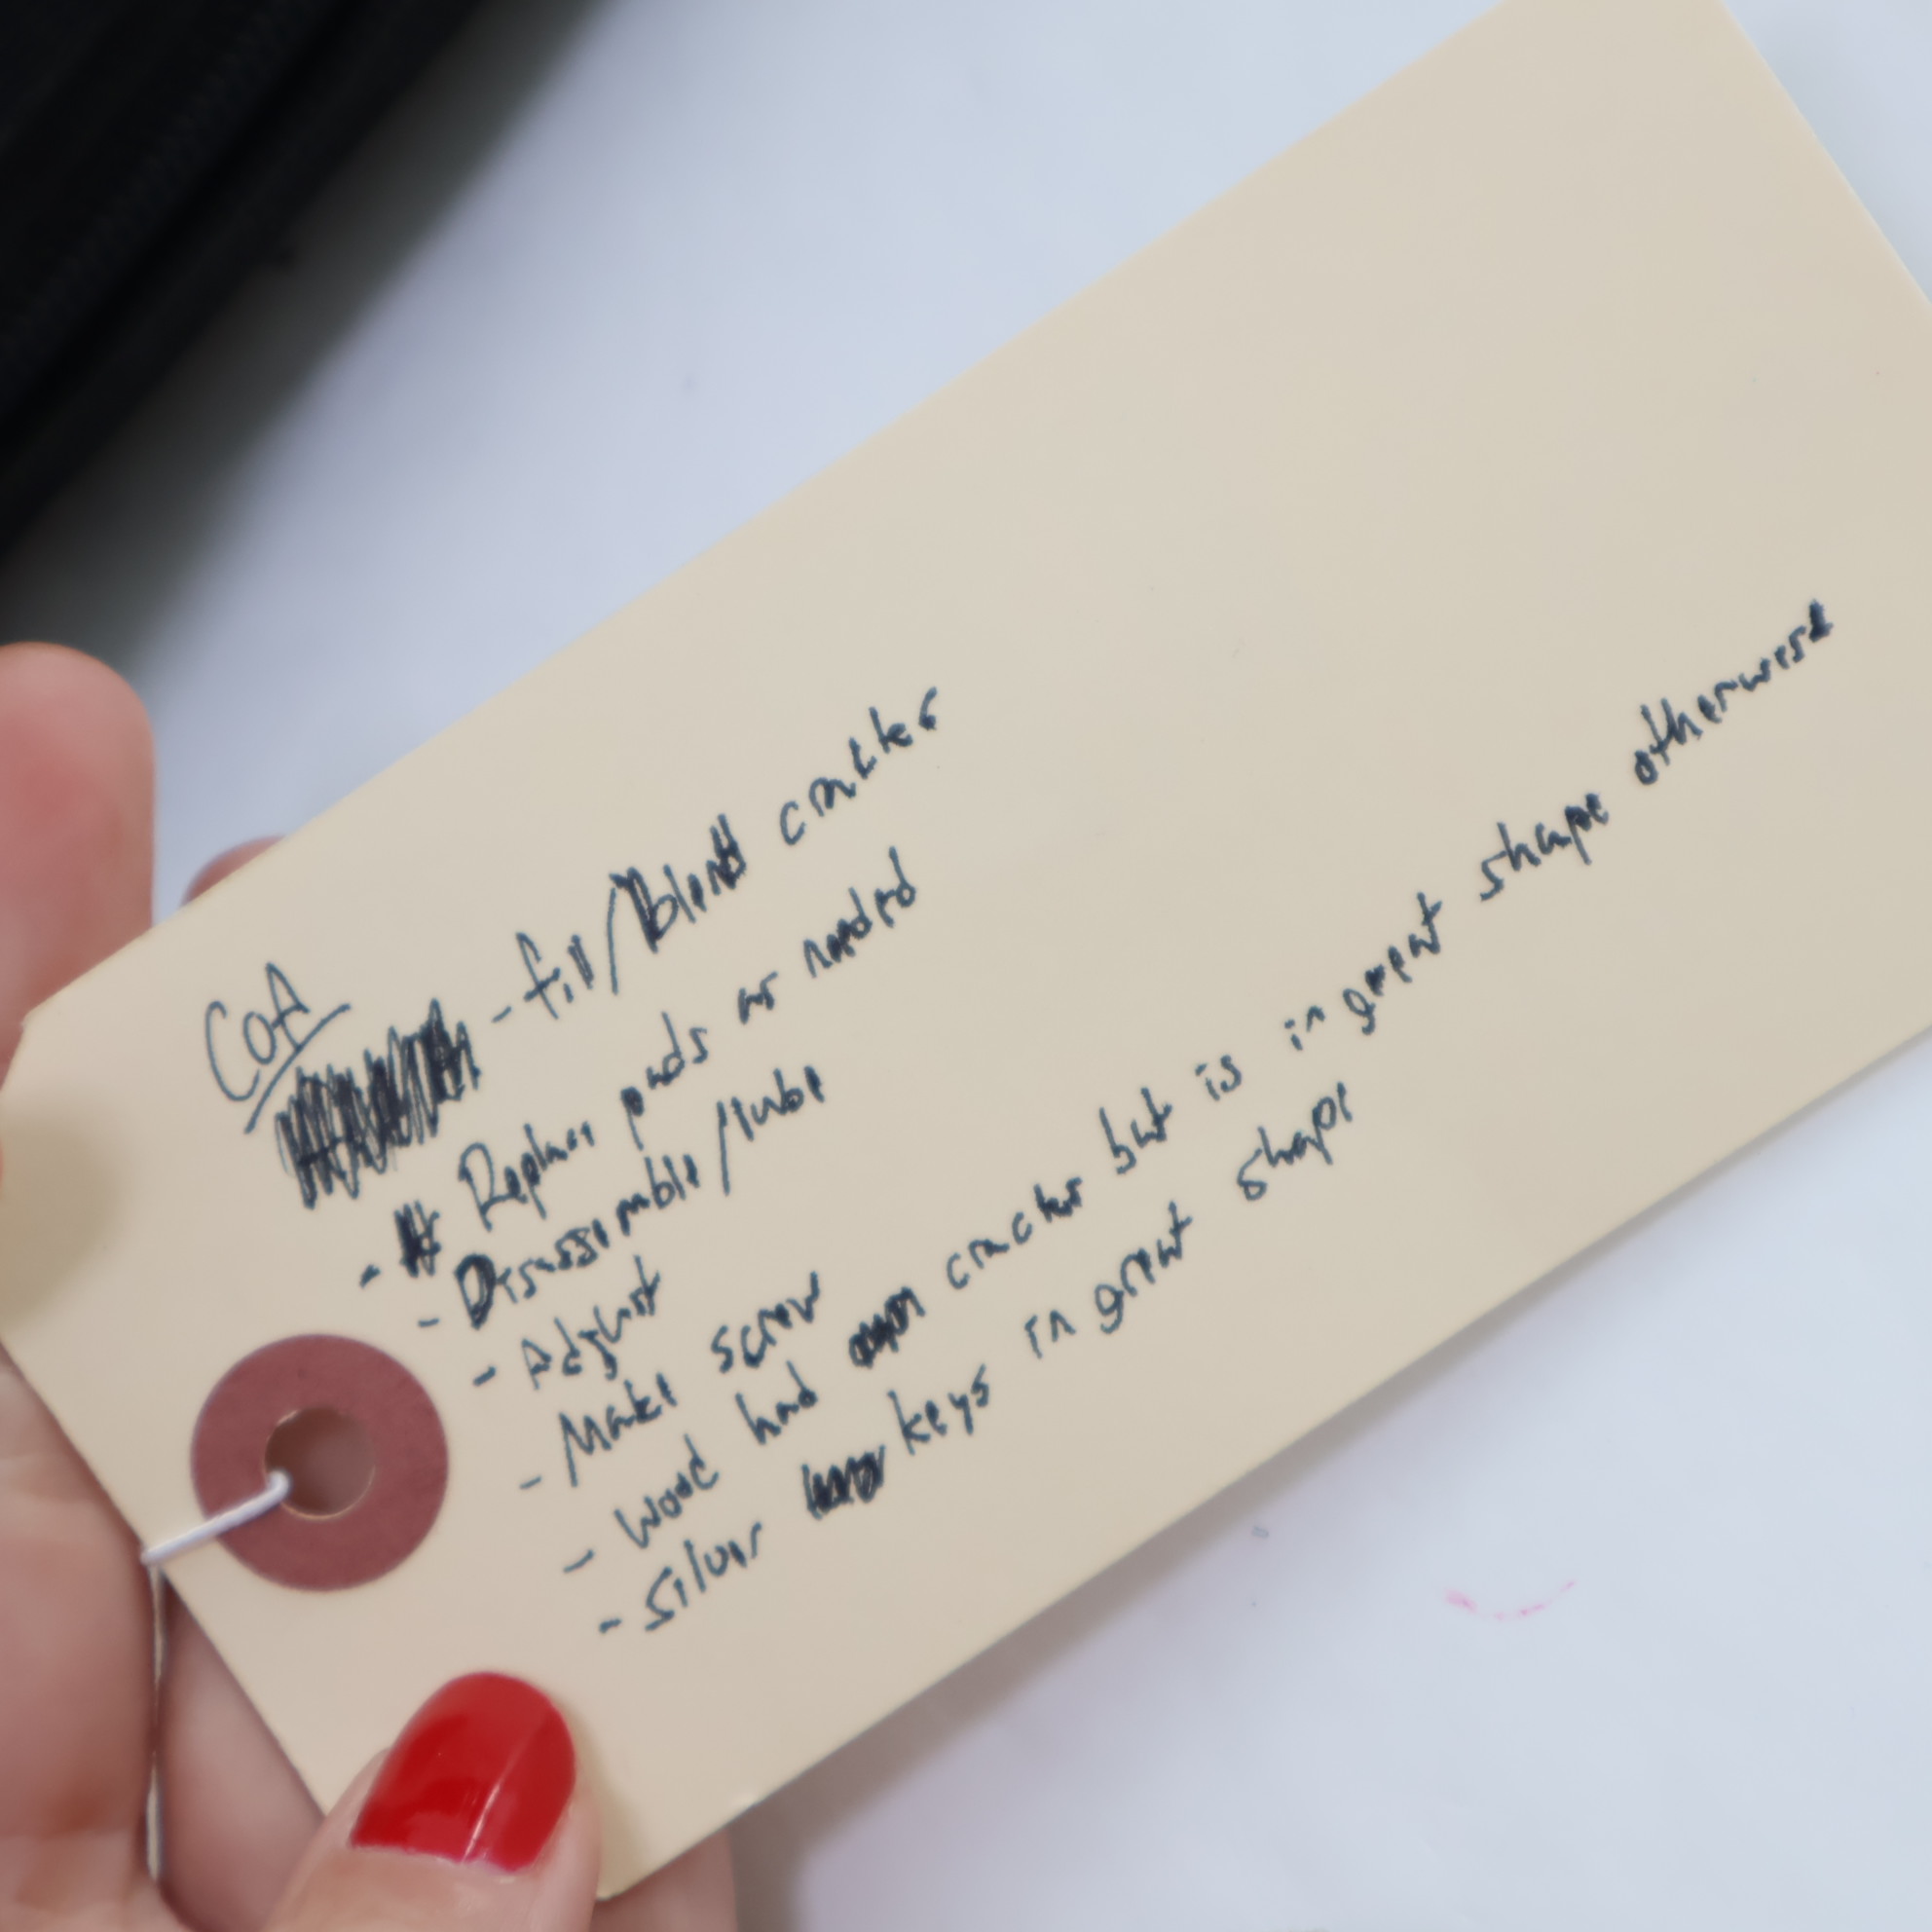 COA
- fill/blend cracks
- Replace pads as needed
- Disassemble/lube
- Adjust
- Make screw
- Wood had cracks but is in great shape otherwise
- Silver keys in great shape